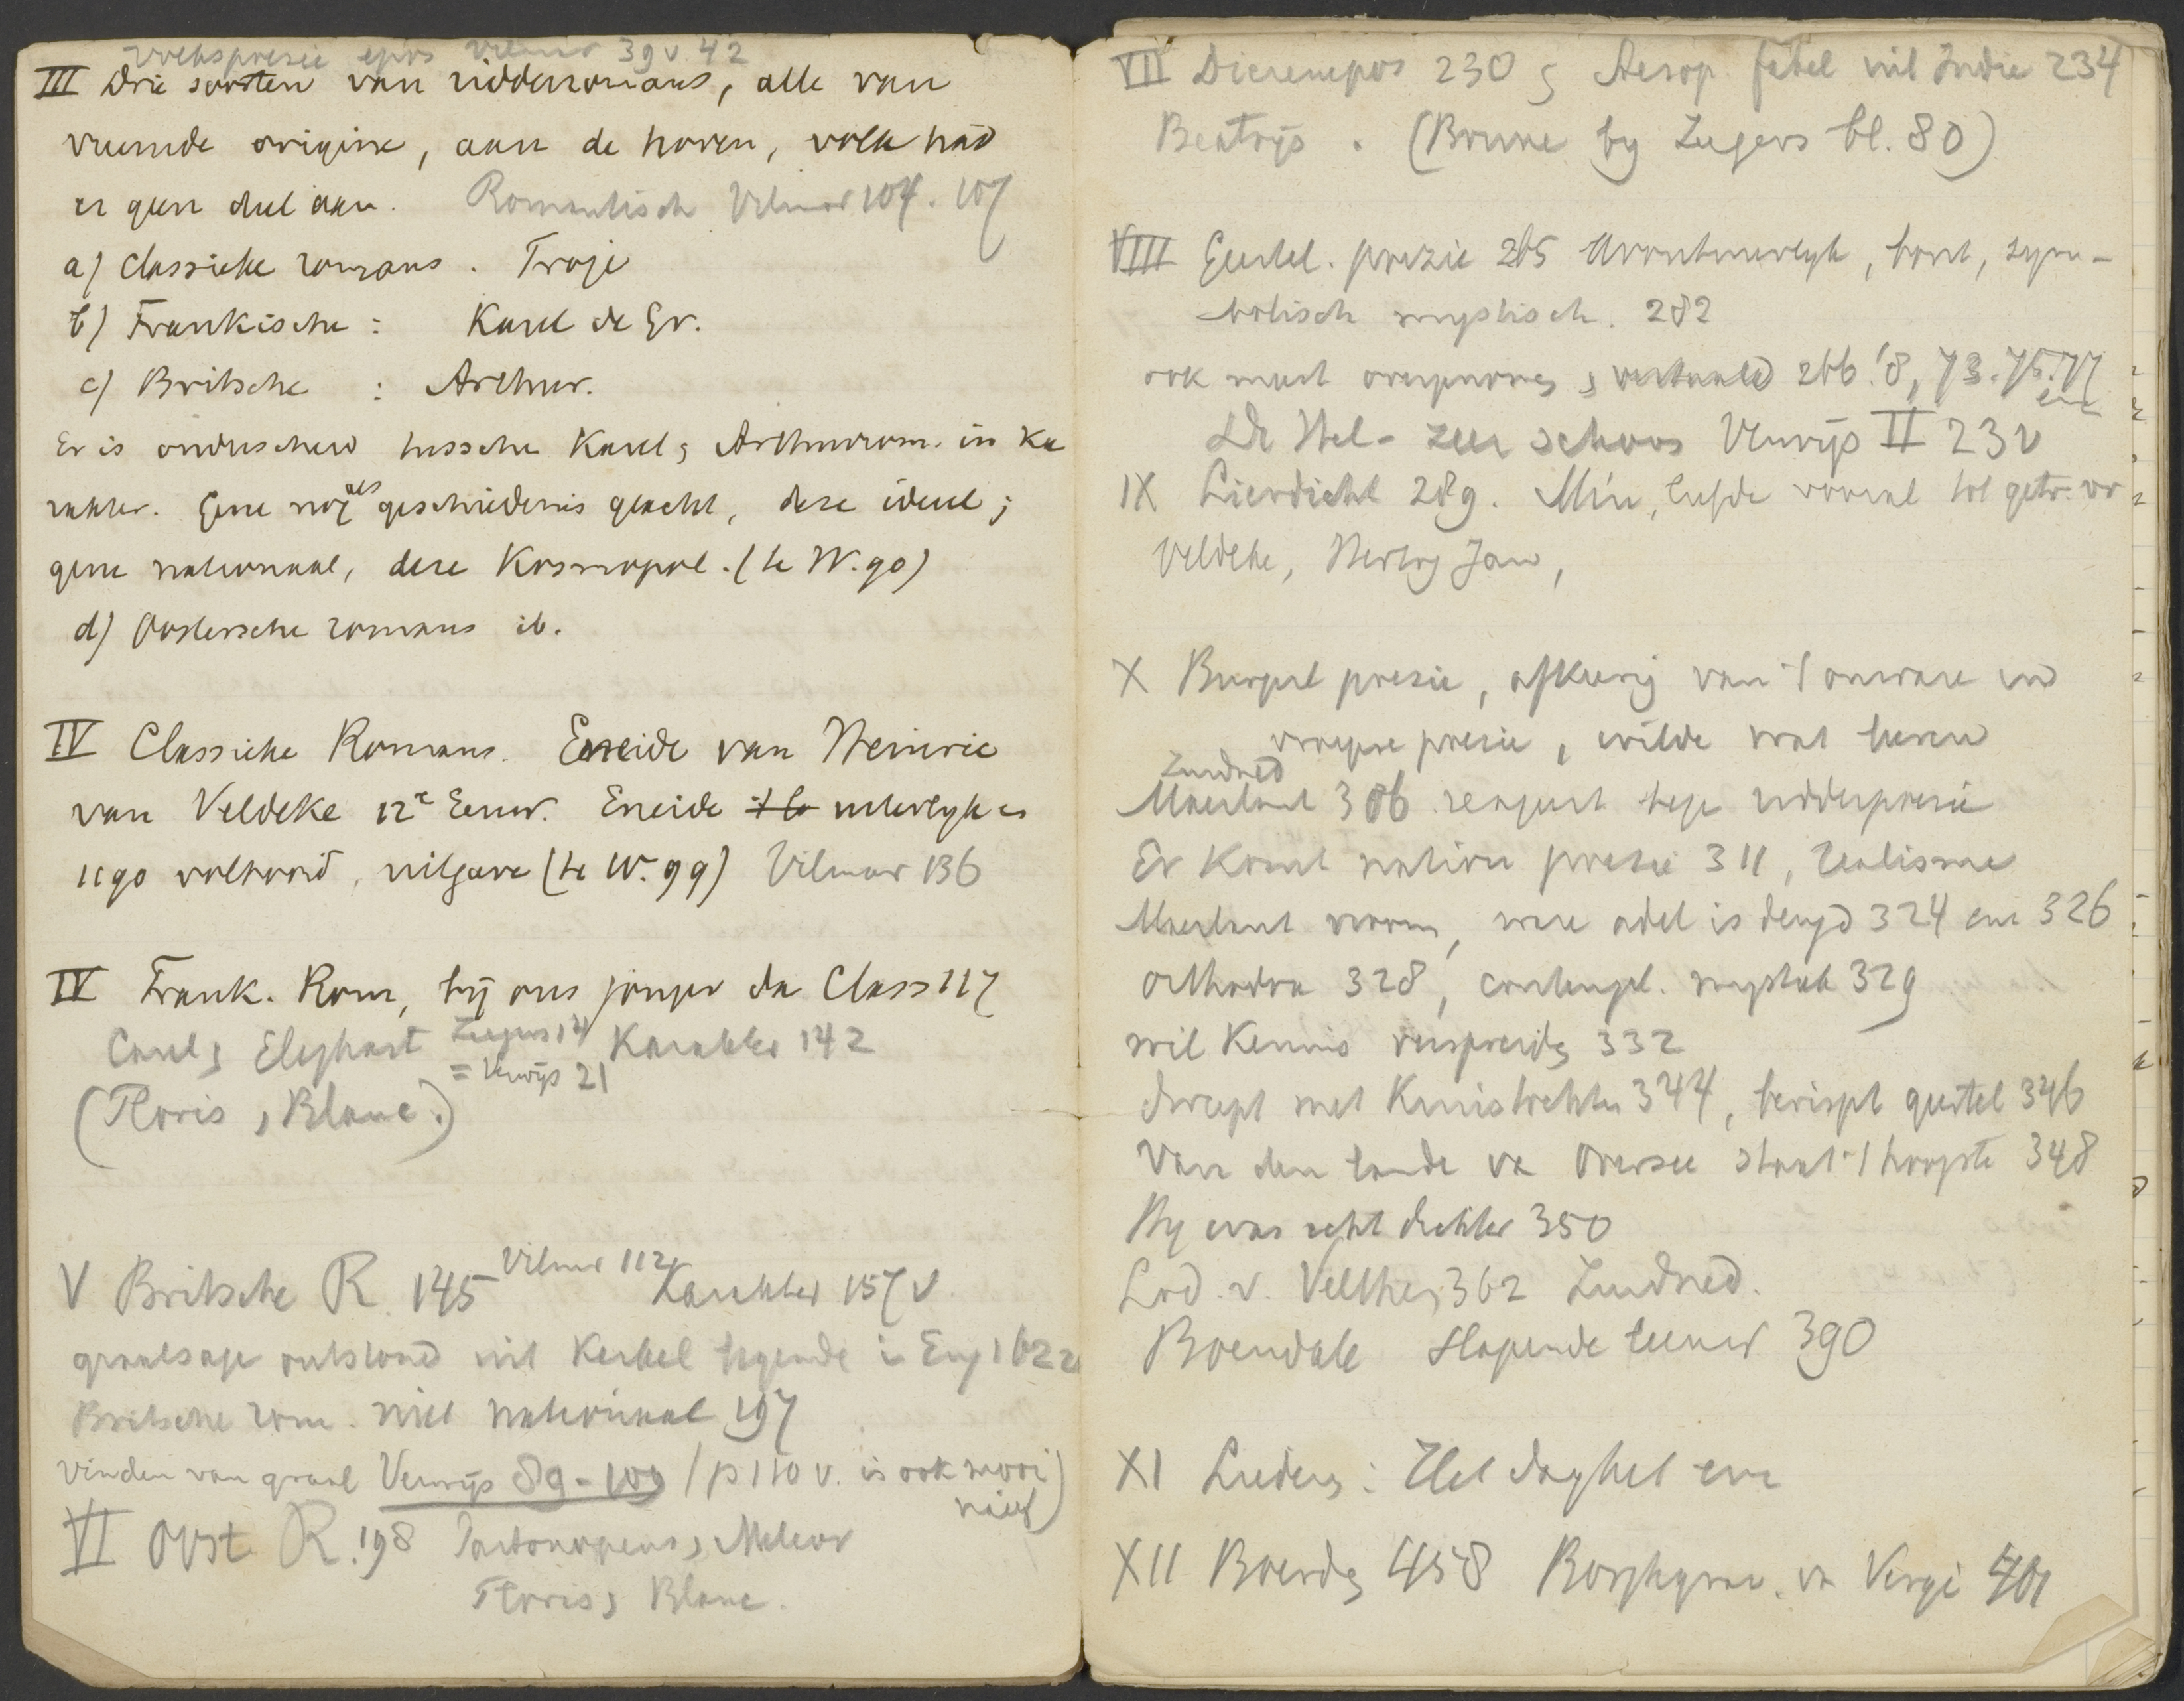 Volkspoesie epos Vilmar 39 v 42
III Drie soorten van ridderromans, alle van
vreemde origine, aan de hoven, volk had
er geen deel aan. Romantisch Vilmar 104. 107
a) Classieke romans. Troje
b) Frankische: Karel de Gr.
c) Britsche: Arthur.
Er is onderscheid tussche Karel & Arthurrom. in ka
rakter. Gene nog als geschiedenis geacht, deze ideeel;
gene nationaal, deze Kosmopol. (te W. 90)
d) Oostersche romans ib.
IV Classieke Romans. Eneide van Heinric
van Veldeke 12e Eeuw. Eneide uiterlyk in
1190 voltooid, uitgave (te W. 99) Vilmar 136
IV Frank. Rom, bij ons jonger da Class 117
Carel & Eleghast Zeegers 14 Karakter 142
= Verwijs 21
(Floris & Blanc.)
V Britsche R. 145 Vilmar 112 Karakter 157 v
graalsage ontstond uit Kerkel legende in Eng 162
Britsche rom. niet nationaal 197
vinden van graal Verwijs 89-109 (p 110 v. is ook mooi
naief)
VI Oost R. 198 Partonopeus & Melior
Floris & Blanc.
VII Dierenepos 230 & Aesop. fabel uit Indie 234
Beatrijs. (Brune by Zegers bl. 80)
VIII Geestel. poezie 265 Avontuurlyk, bont, sym-
bolisch mystisch. 282
ook meest overgenomen, vertaald 266.'8, 73.75.77
De Hel - zeer schoon Verwijs II 23 v
IX Lierdicht 289. Min, liefde vooral
Veldeke, Hertog Jan,
X Burgerl poezie, afkeerig van 't onware en
vroegere poezie, wilde wat leeren
Zuidned
Maerlant 306 reageert tege ridderpoezie
Er komt nation poezie 311, realisme
Maerlant vroom, ware adel is deugd 324 en 326
orthodox 328, contempl. mystiek 329
wil kennis verspreiden 332
dweept met Kruistochten 344, berispt geestel 346
Van den lande va Oversee staat 't hoogste 348
Hy was echt dichter 350
Lod. v. Velthem 362 Zuidned.
Boendale slapende leeuw 390
XI Liederen: Het daghet
XII Boerden 458 Borchgrav. va Vergi 401